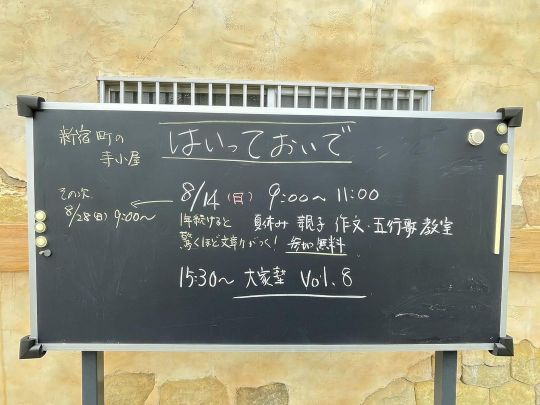 新宿町の
寺小屋
はいっておいで
その次
8/28(日) 9:00～
8/14(日) 9:00～11:00
1年続けると
驚くほど文章力がつく!
夏休み 親子 作文・五行歌教室
参加無料
15:30～ 大家塾 Vol.8